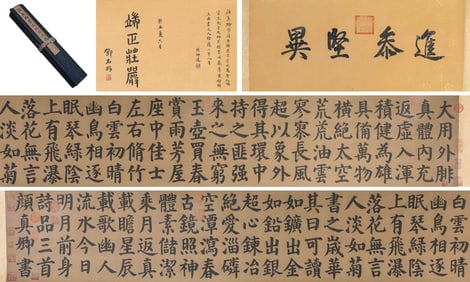 端正莊嚴
鄧石如
進忝堅異
大用外腓
真體內充
返虛入渾
具備萬物
橫絕太空
荒荒油雲
寥寥長風
超以象外
得其環中
持之匪強
來之無窮
玉壺買春
賞雨茆屋
座中佳士
左右脩竹
白雲初晴
幽鳥相逐
眠琴綠陰
上有飛瀑
落花無言
人淡如菊
白雲初晴
幽鳥相逐
眠琴綠陰
上有飛瀑
落花無言
人淡如菊
書之歲華
其曰可讀
如鑛出金
如鉛出銀
超心鍊冶
絕愛淄磷
空潭瀉春
古鏡照神
體素儲潔
乘月返真
載瞻星辰
載歌幽人
流水今日
明月前身
詩品三首
顏真卿書